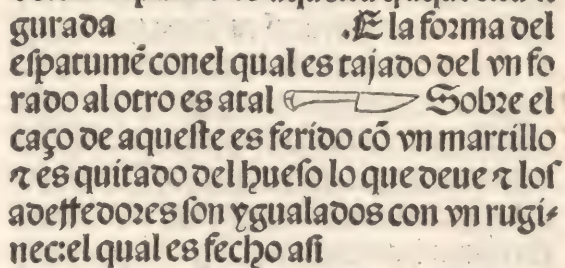 gurada .E la forma del
eſpatumē conel qual es tajado del vn fo
rado al otro es atal Sobre el
caço de aqueſte es ferido cō vn martillo
⁊ es quitado del hueſo lo que deue ⁊ loſ
adeſſedores ſon ygualados con vn rugi⸗
nec:el qual es fecho aſi